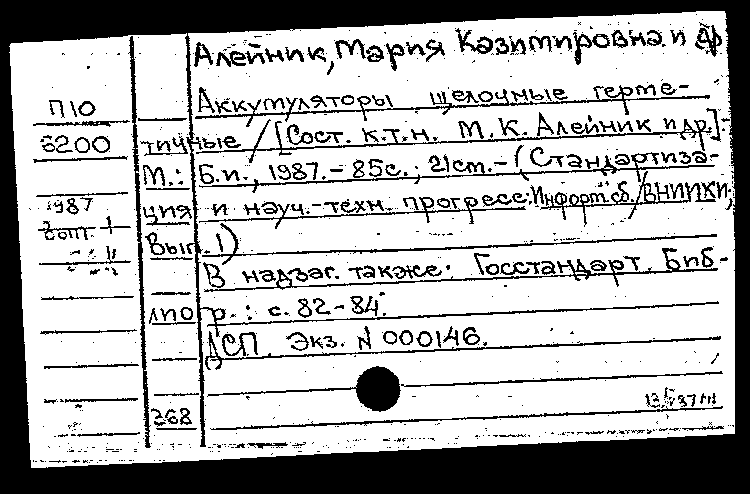 Алейник, Мария Казимировна и др
П10 Аккумуляторы щелочные герме-
6200 тичные / [Сост. к.т.н. М. К. Алейник и др.].-
М.: Б.и., 1987.- 85с.; 21см.- (Стандартиза-
1987 ция и науч.-техн. прогресс: Информ. сб. / ВНИИКИ;
Вып. 1)
В надзаг. также: Госстандарт. Биб-
лиогр.: с. 82-84.
ДСП. Экз. N 000146.
368